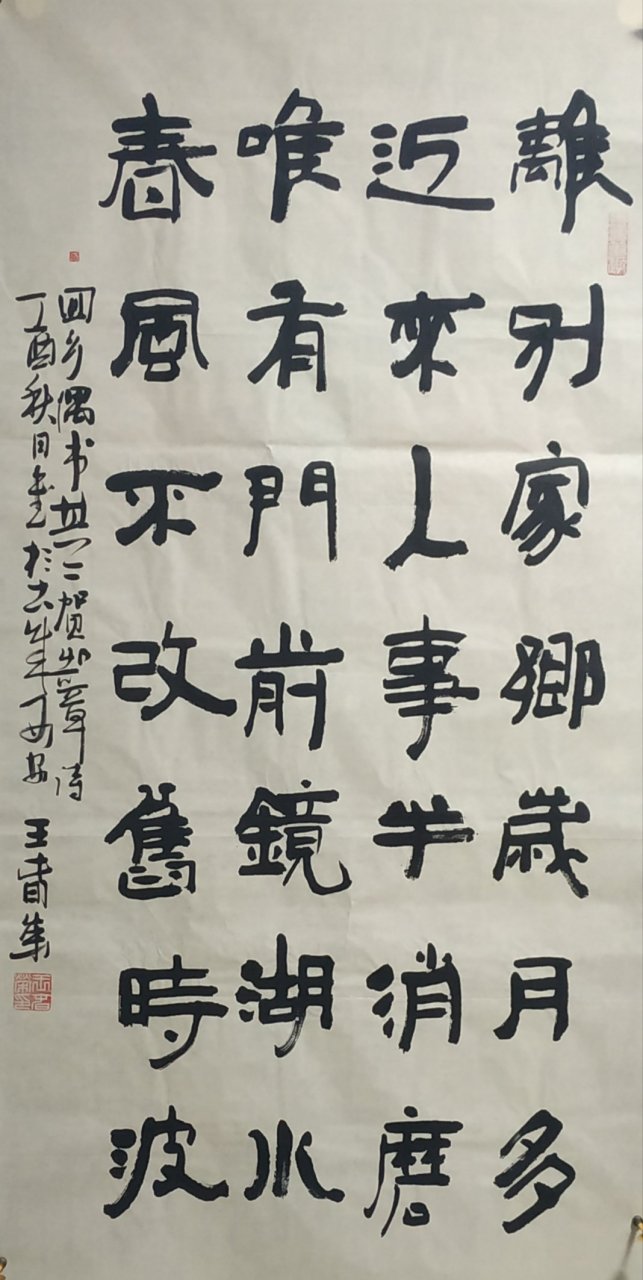 離別家鄉歲月多
近來人事半消磨
唯有門前鏡湖水
春風不改舊時波
回乡偶书其二贺知章诗
丁酉秋月書於古生王